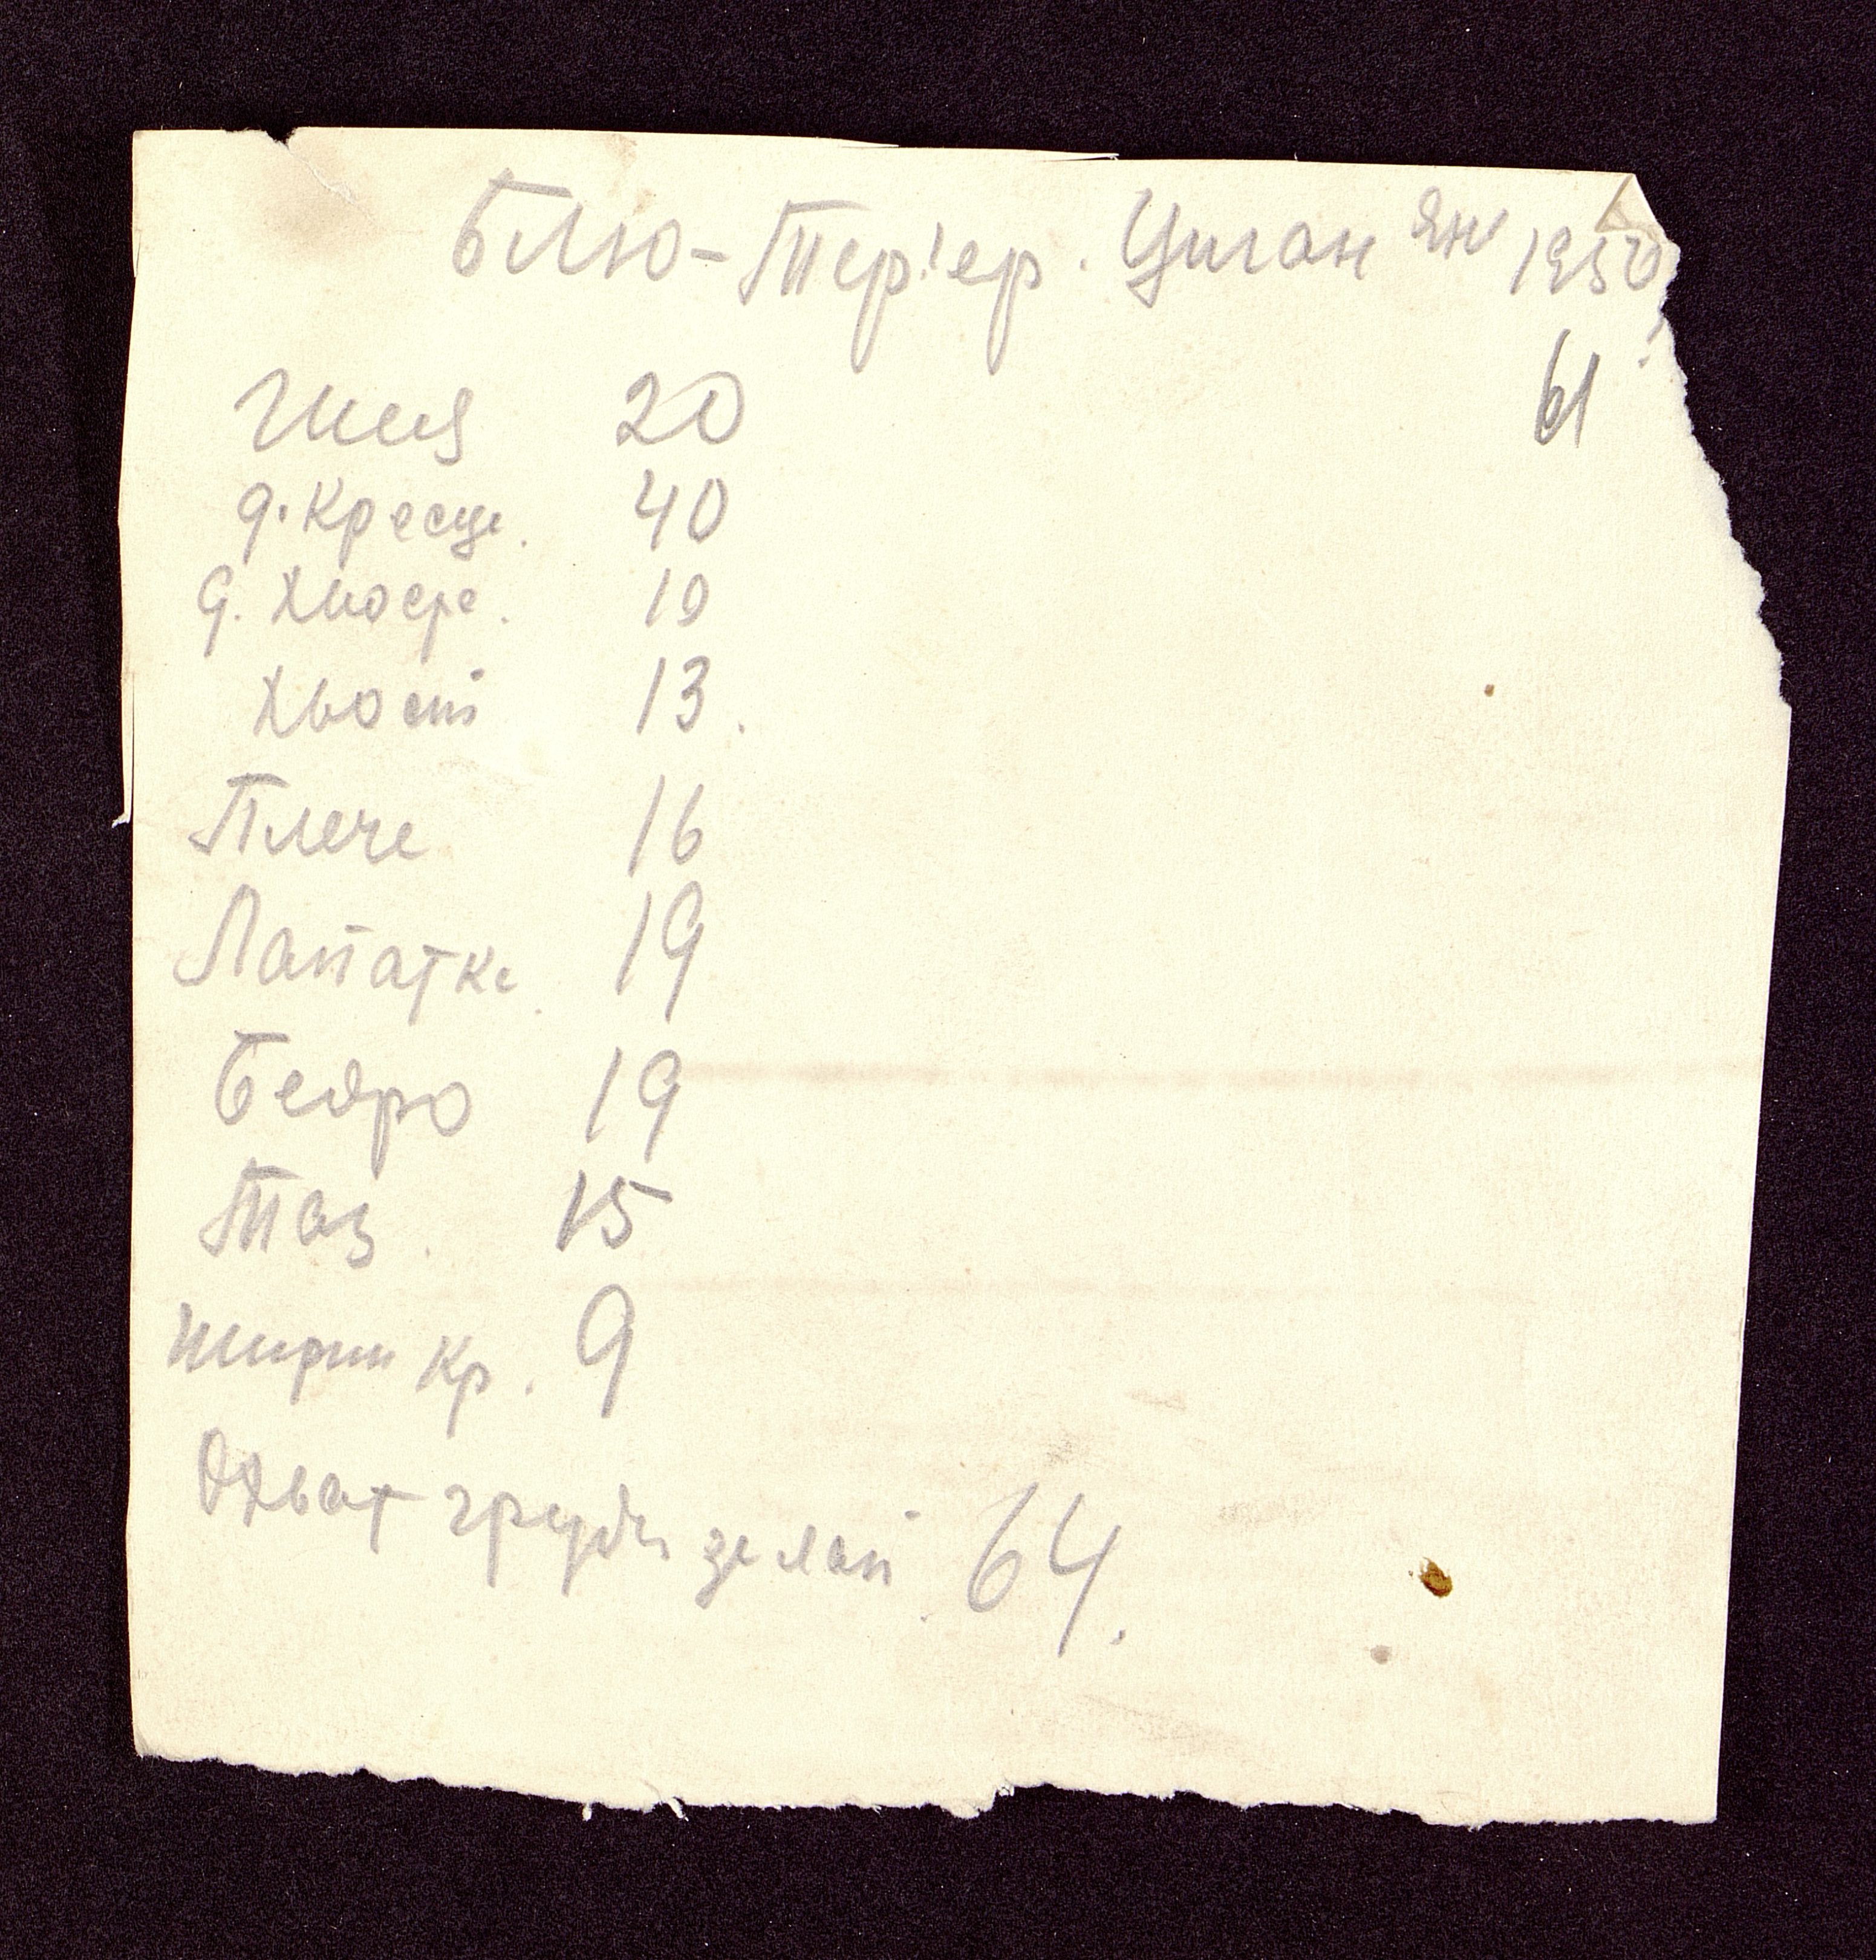 Блю-Тер'ер. Циган Ян 1950
61
Шия 20
д. Кресце. 40
д. Хвосте. 10
Хвост 13.
Плече 16
Лапатке. 19
Бедро 19
Таз. 15
Ширин Кр. 9
Охват груди за лап. 64.